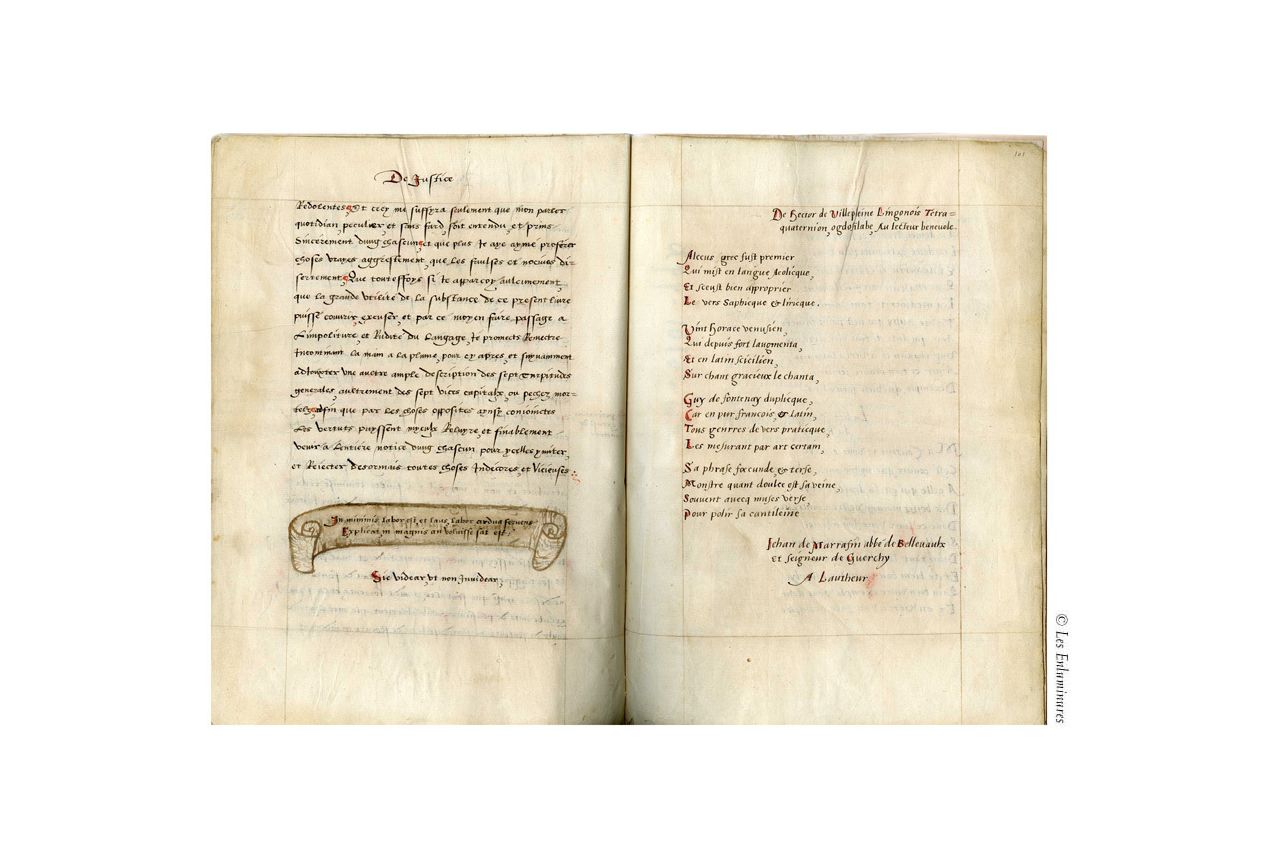 De Justice
Redolentes, Et cecy me suffyra seulement que mon parler
quotidian, peculier, et sans fard, soit entendu, et prins
Sincerement dung chascun, et que plus Je aye aymé proferer
choses vrayes aggrestement, que les faulses et nocives di-
sertement, Que touteffoys si Je apparçoy aulcunement,
que la grande utilite de la substance de ce present livre
puisse couvrir, excuser, et par ce moyen faire passage a
Limpoliture, et Rudite du Langage, Je promects Remectre
Incontinant la main a la plume, pour cy apres, et suyvamment
adjouxter une aultre ample description des sept turpitudes
generales, aultrement des sept vices capitalx, ou pechez mor-
telz, afin que par les choses opposites aynsy conjoinctes
Les vertuts puyssent myeulx Reluyre, et finablement
venir a Lentiere notice dung chascun pour ycelles ymiter,
et Rejecter desormais toutes choses Indecores, et Vicieuses.
In minimis labor est et laus, labor ardua
Explicat, in magnis an voluisse sat est.
Sic videar, ut non Invidear,
101
De hector de Villepleine Lingonois Tetra=
quaternion, ogdosilabe, Au lecteur benevole.
Alceus grec fust premier
Qui mist en langue Aeolicque,
Et sceust bien approprier
Le vers Saphicque & liricque.
Vint horace venusien,
Qui depuis fort laugmenta,
Et en latin sicilien,
Sur chant gracieux le chanta,
Guy de fontenay duplicque,
Car en pur francois, & latin,
Tous genrres de vers praticque,
Les mesurant par art certain,
Sa phrase foecunde & terse,
Monstre quant doulce est sa veine,
Souvent avecq muses verse,
Pour polir sa cantileine
Jehan de Marrafin abbé de Bellevaulx
et seigneur de Guerchy
A Lautheur
© Les Enluminures